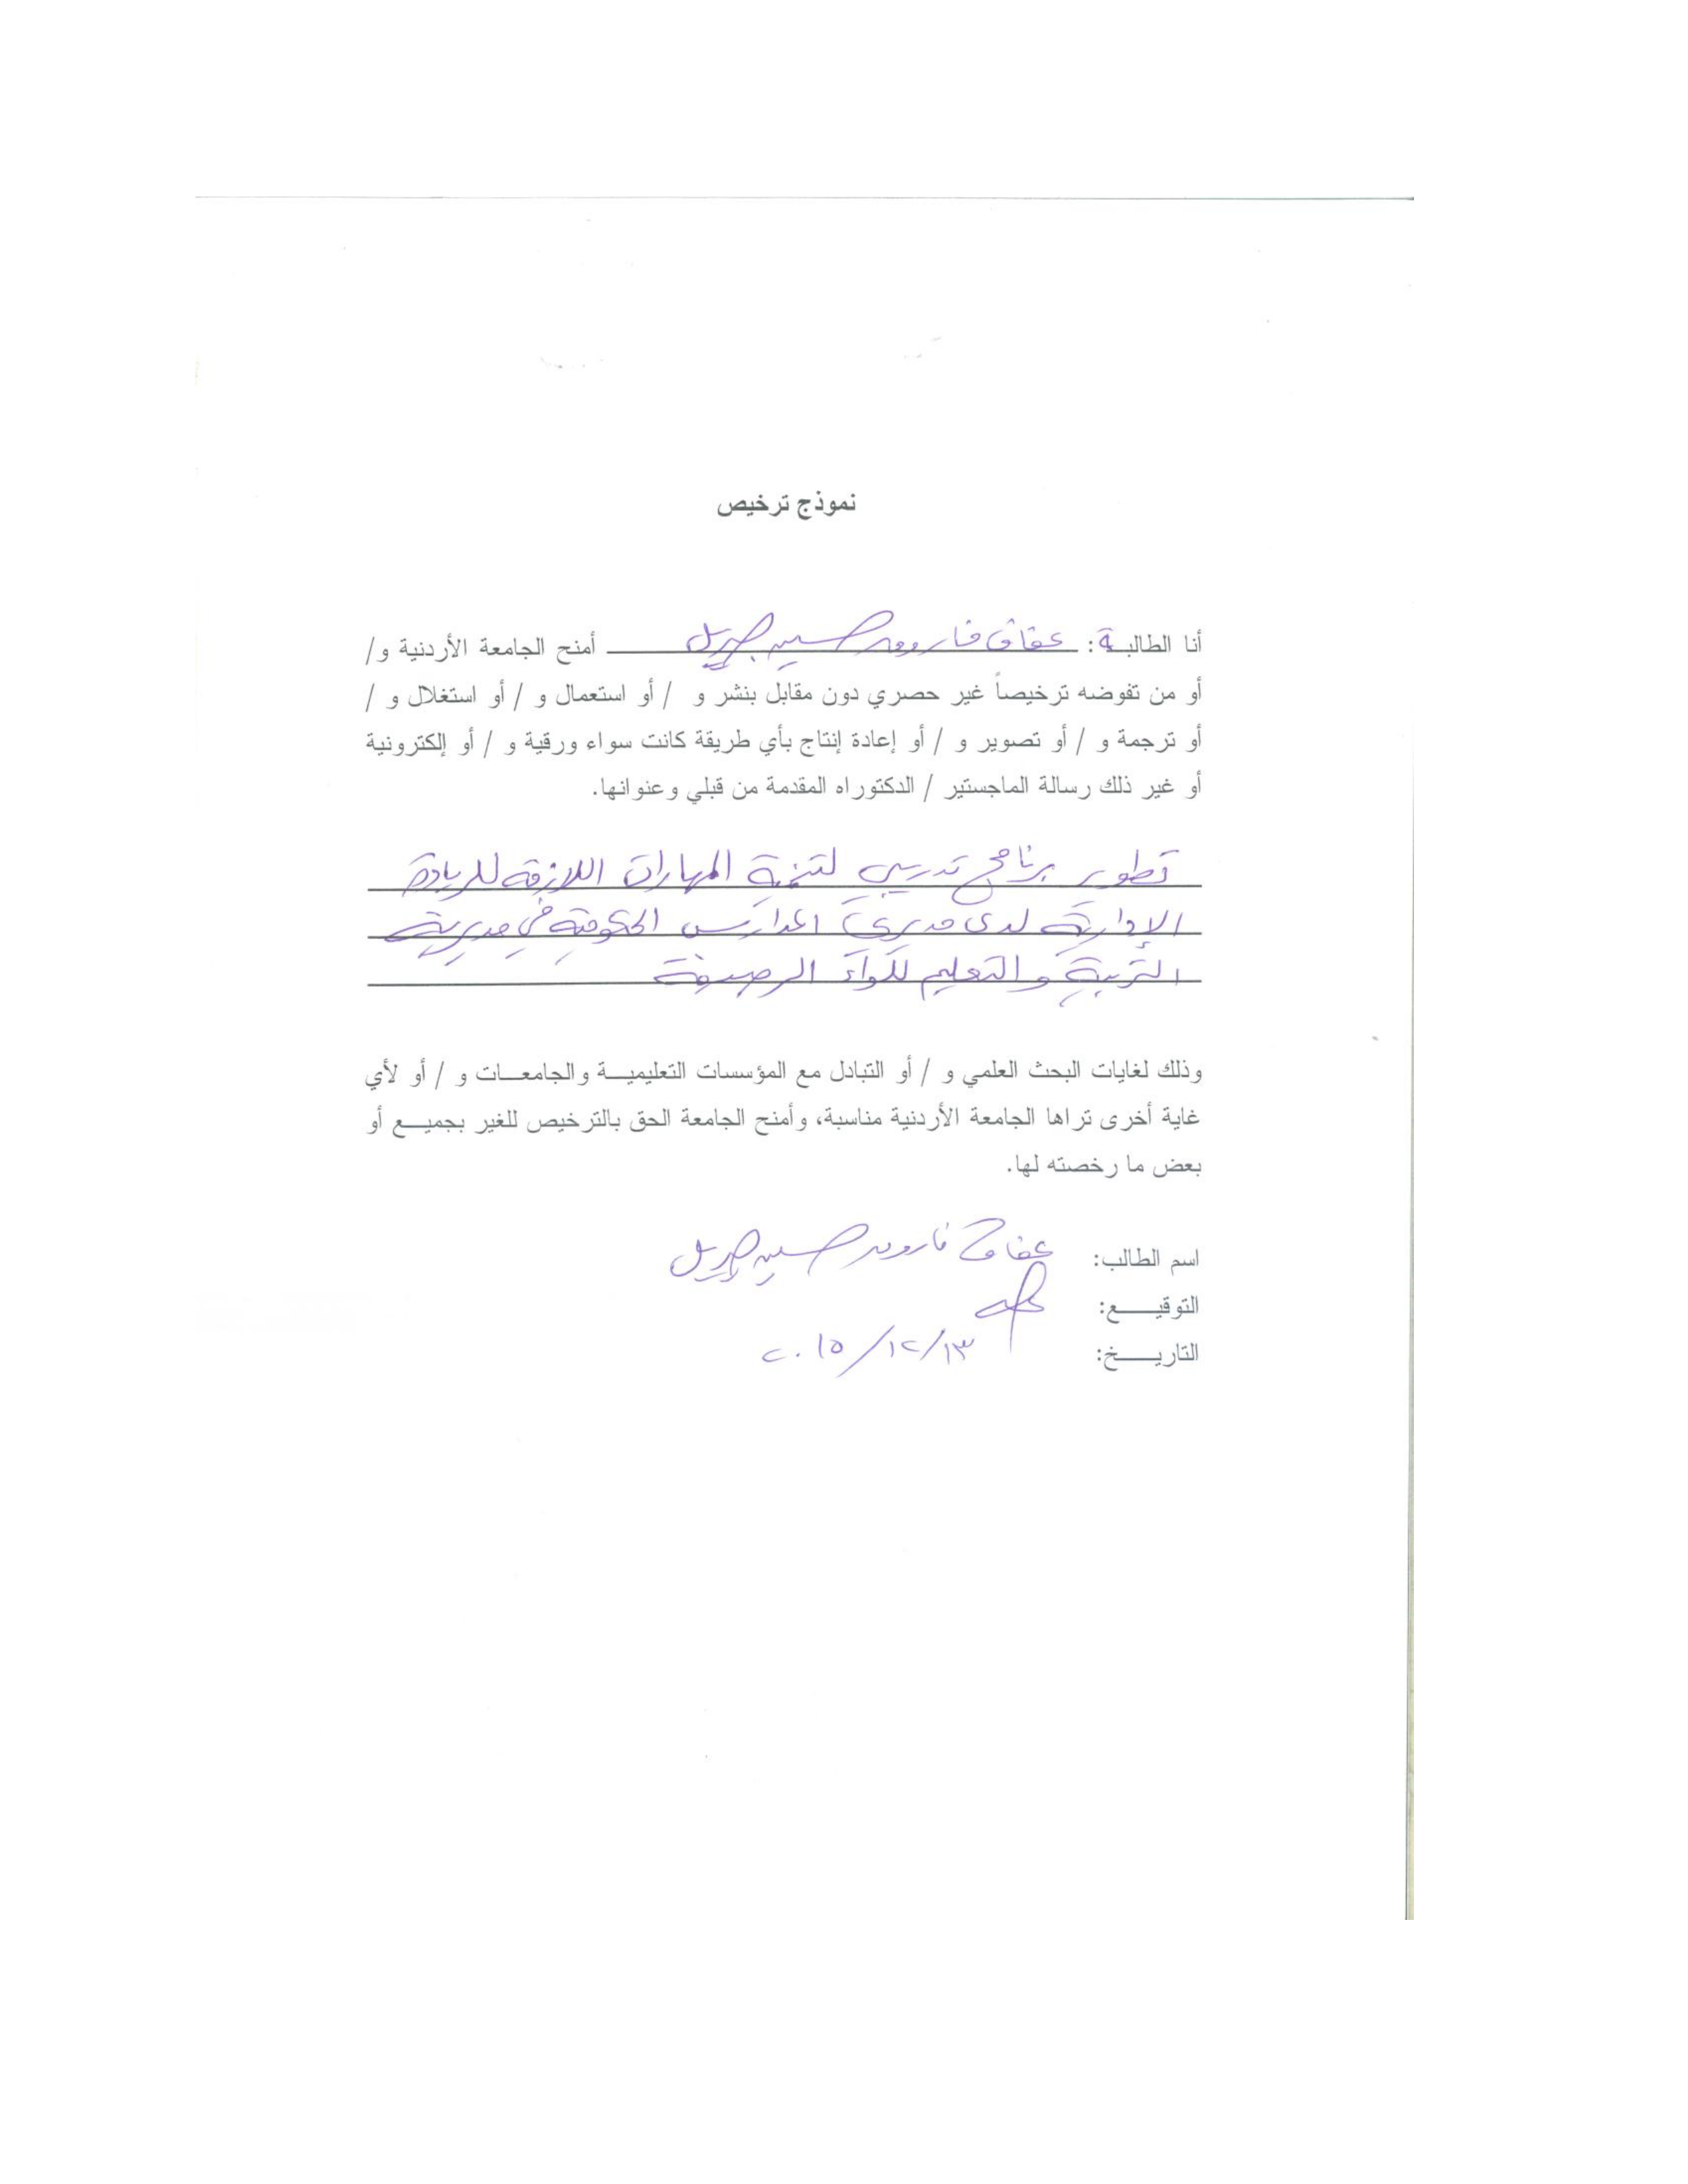 نموذج ترخيص
أنا الطالبة: عفاف فاروق حسين جبريل أمنح الجامعة الأردنية و/
أو من تفوضه ترخيصاً غير حصري دون مقابل بنشر و / أو استعمال و / أو استغلال و /
أو ترجمة و / أو تصوير و / أو إعادة إنتاج بأي طريقة كانت سواء ورقية و / أو إلكترونية
أو غير ذلك رسالة الماجستير / الدكتوراه المقدمة من قبلي وعنوانها.
تطوير برنامج تدريبي لتنمية المهارات اللازمة للريادة
الإدارية لدى مديري المدارس الحكومية في مديرية
التربية والتعليم للواء الرصيفة
وذلك لغايات البحث العلمي و / أو التبادل مع المؤسسات التعليميـــة والجامعـــات و / أو لأي
غاية أخرى تراها الجامعة الأردنية مناسبة، وأمنح الجامعة الحق بالترخيص للغير بجميـــع أو
بعض ما رخصته لها.
اسم الطالب: عفاف فاروق حسين جبريل
التوقيـــع:
التاريـــخ: ١٣/١٢/٢٠١٥